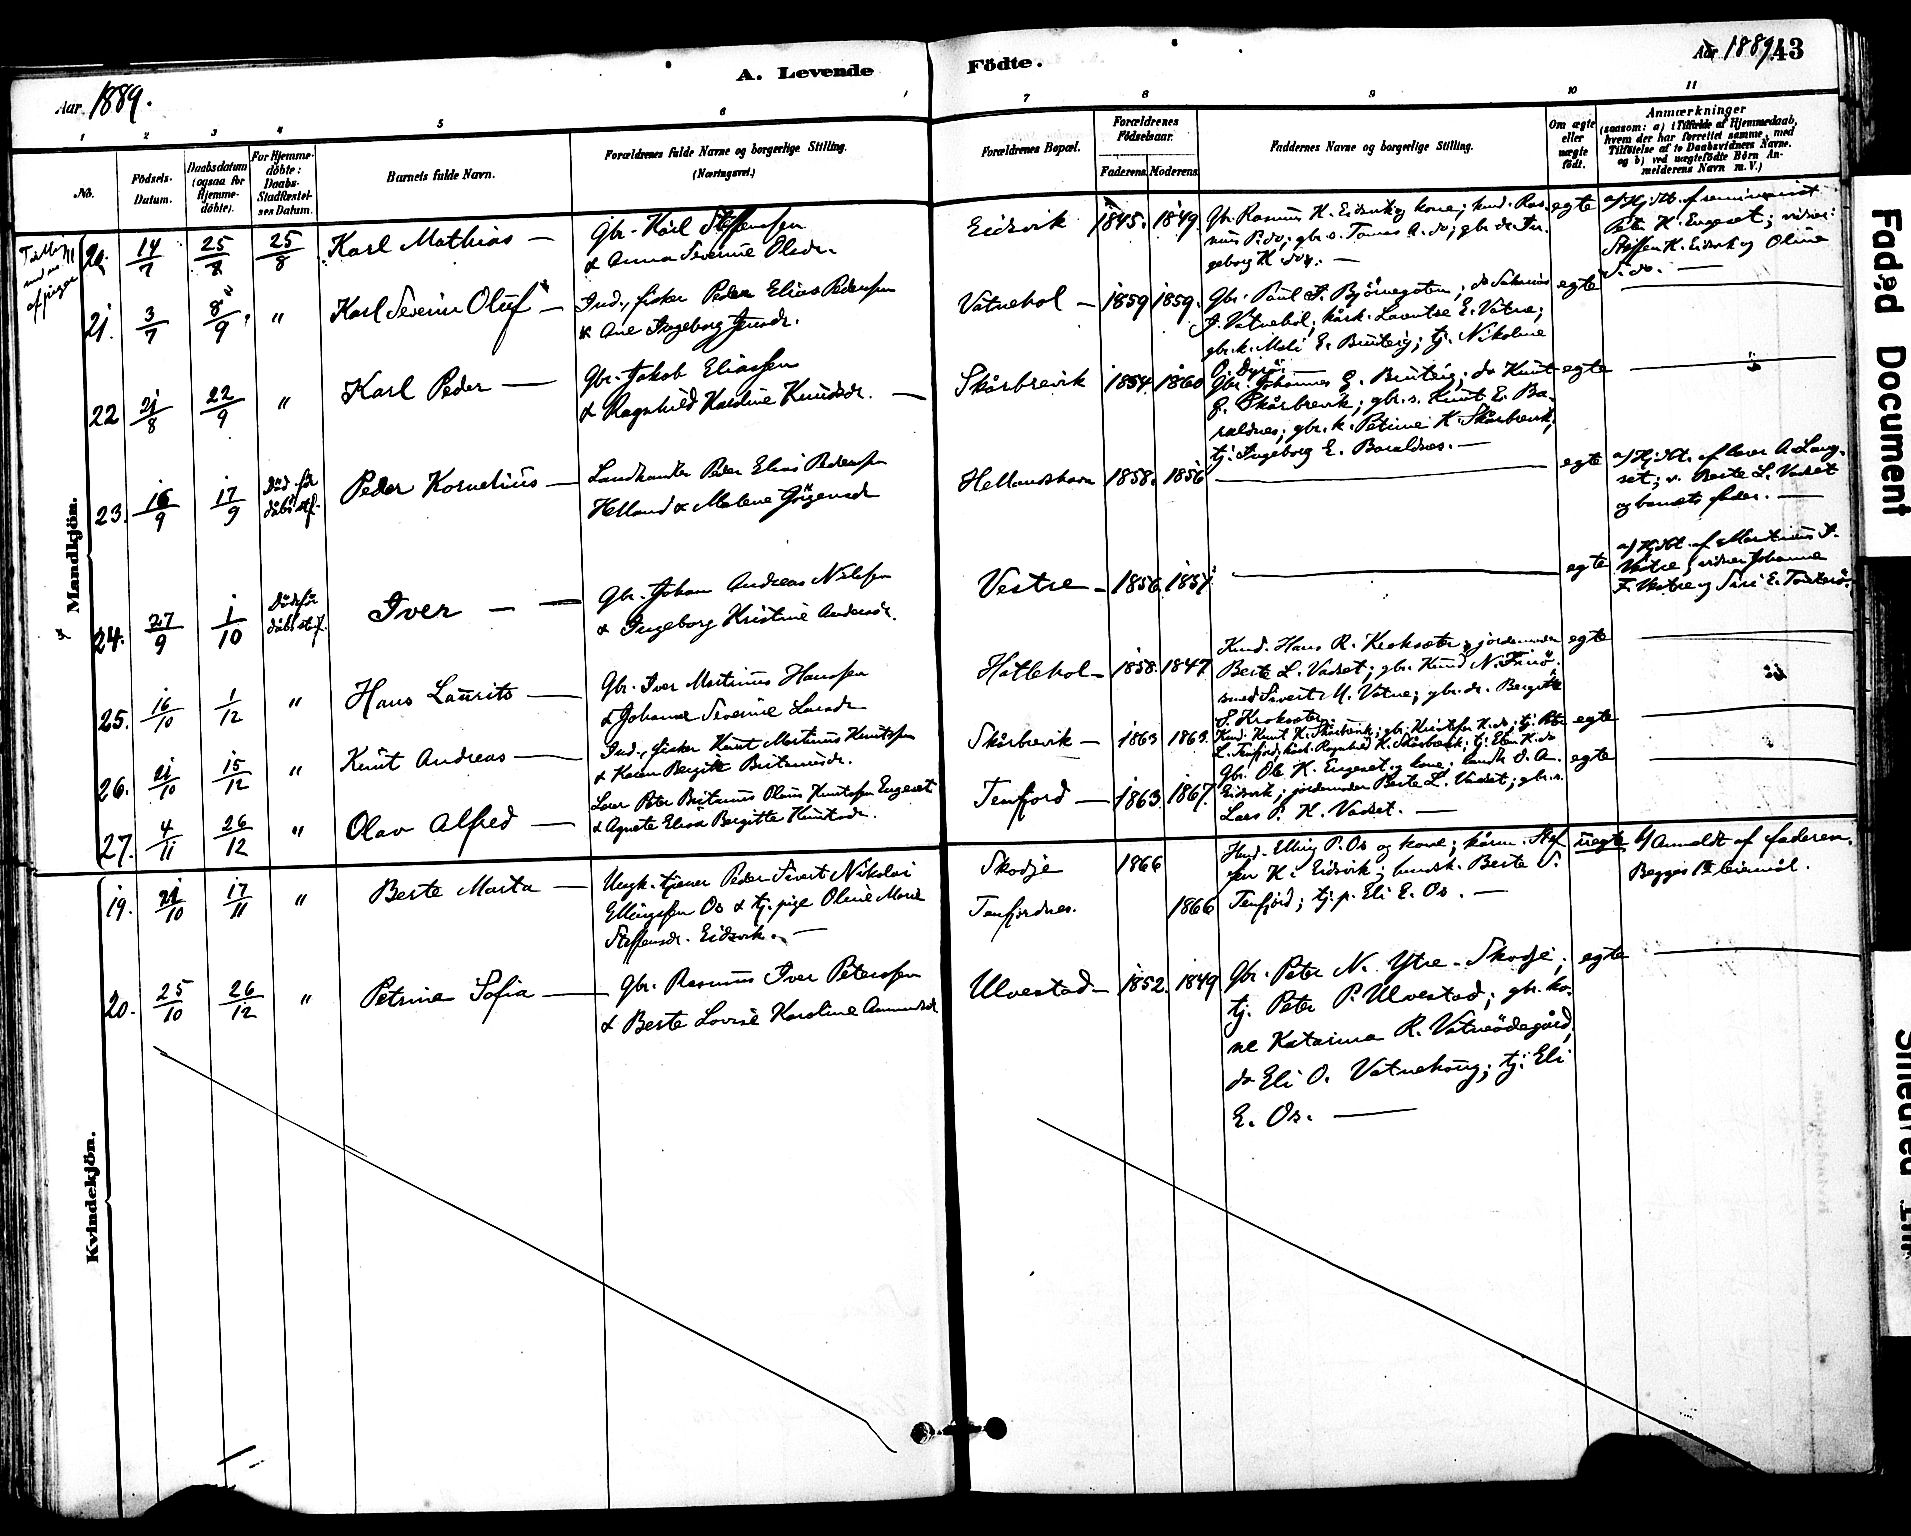 A. Levende Födte.
Aar. 1889.
Aar 1889. 43
1 2 3 4 5 6 7 8 9 10 11
No.
Födsels-
Datum.
Daabsdatum
(ogsaa for
Hjemme-
döbte).
For Hjemme-
döbte:
Daabs-
Stadfæstel-
ses Datum.
Barnets fulde Navn.
Forældrenes fulde Navne og borgerlige Stilling.
(Næringsvei.)
Forældrenes Bopæl.
Forældrenes
Födselsaar.
Faderens Moderens.
Faddernes Navne og borgerlige Stilling.
Om ægte
eller
uægte
födt.
Anmærkninger
(saasom: a) i Tilfælde af Hjemmedaab,
hvem der har forrettet samme, med
Tilföielse af to Daabsvidners Navne.
og b) ved uægtefödte Börn An-
melderens Navn m.V.)
Mandkjön.
20. 14/7 25/8 25/8 Karl Mathias —
Gbr. Karl Steffensen
& Anna Severine Olsdr.
Eidsvik 1845. 1849.
Gbr. Rasmus K. Eidsvik og kone; ind. Ras-
mus P. do; gbr. s. Tomas A. do; gbr. dr. In-
geborg K. do. —
egte
a) Hj.dt. af seminarist
Peter K. Engeset; vidner:
Steffen K. Eidsvik og Oline
21. 3/7 8/9 " Karl Severin Oluf —
Ind., fisker Peder Elias Pedersen
& Ane Ingeborg Jensdr.
Vatnehol — 1859 1859.
Gbr. Paul S. Björnegaten; do Sakarias
J. Vatnehol; kårk. Laventse E. Vatne;
gbr. k. Mali E. Binteig; tj. Nikoline
O. Dyrö. —
egte —
22 21/8 22/9 " Karl Peder —
Gbr. Jakob Eliassen
& Ragnhild Karoline Knudsdr. —
Skårbrevik 1854. 1860
Gbr. Johannes E. Binteig; do Knut
E. Skårbrevik; gbr. s. Knut E. Ba-
raldnes; gbr. k. Petrine K. Skårbrevik;
tj. Ingeborg E. Baraldnes. —
egte —
23. 16/9 17/9 Död för
dåbs stf. Peder Kornelius —
Landhandler Peder Elias Pedersen
Helland & Malene Jörgensdr
Hellandshavn 1858. 1856
— egte
a) Hj.dt. af lærer A. Lang-
set; v. Berte L. Vadset
og barnets fader. —
24. 27/9 1/10 Död för
dåbs stf. Iver — —
Gbr. Johan Andreas Nilsen
& Ingeborg Kristine Andersdr.
Vestre — 1856. 1857
— egte
a) Hj.dt. af Martinus I.
Vestre; vidner Johanne
F. Vestre og Siri E.
25. 16/10 1/12 " Hans Laurits —
Gbr. Iver Martinus Hansen
& Johanne Severine Larsdr
Hatlehol — 1858. 1847
Ind. Hans R. Kroksæter; jordemoder
Berte L. Vadset; gbr. Knud N. Frisö
smed Sivert M. Vatne; gbr. dr. Bergitte
S. Kroksæter.
egte —
26. 21/10 15/12 " Knut Andreas —
Ind., fisker Knut Martinus Knutsen
& Karen Bergitte Britanusdr.
Skårbrevik — 1863 1863.
Ind. Knut K. Skårbrevik; gbr. Kristofer K. do; tj. Peter
L. Tenfjord; kårk. Ragnhild K. Skårbrevik; tj. Elen K. do
egte —
27. 4/11 26/12 " Olav Alfred —
Lærer Peter Britanus Olaus Knutsen Engeset
& Agnete Elisa Bergitte Knutsdr.
Tenfjord — 1863 1867.
Gbr. Ole K. Engeset og kone; landh. O. A.
Eidsvik; jordemoder Berte L. Vadset; gbr. s.
Lars P. K. Vadset. —
egte —
Kvindekjön.
19. 21/10 17/11 " Berte Marta —
Ungk. tjener Peder Sivert Nikolai
Ellingsen Os & tj. pige Oline Marie
Steffensdr. Eidsvik. —
Skodje 1866
Tenfjordnes. 1866
Husb. Elling P. Os og kone; kårm. Stef-
fen K. Eidsvik; husk. Berte S.
Tenfjord; tj. p. Eli E. Os. —
uegte
b) Anmeldt af faderen.
Begges 1ste leiermål.
20. 25/10 26/12 " Petrine Sofia —
Gbr. Rasmus Iver Petersen
& Berte Lovise Karoline Ammundsdr
Ulvestad — 1852. 1849
Gbr. Peter N. Ytre-Skodje;
tj. Peter P. Ulvestad; gbr. ko-
ne Katarina R. Vatneödegård;
do Eli O. Vatnehaug; tj. Eli
E. Os. —
egte —
Faded Document